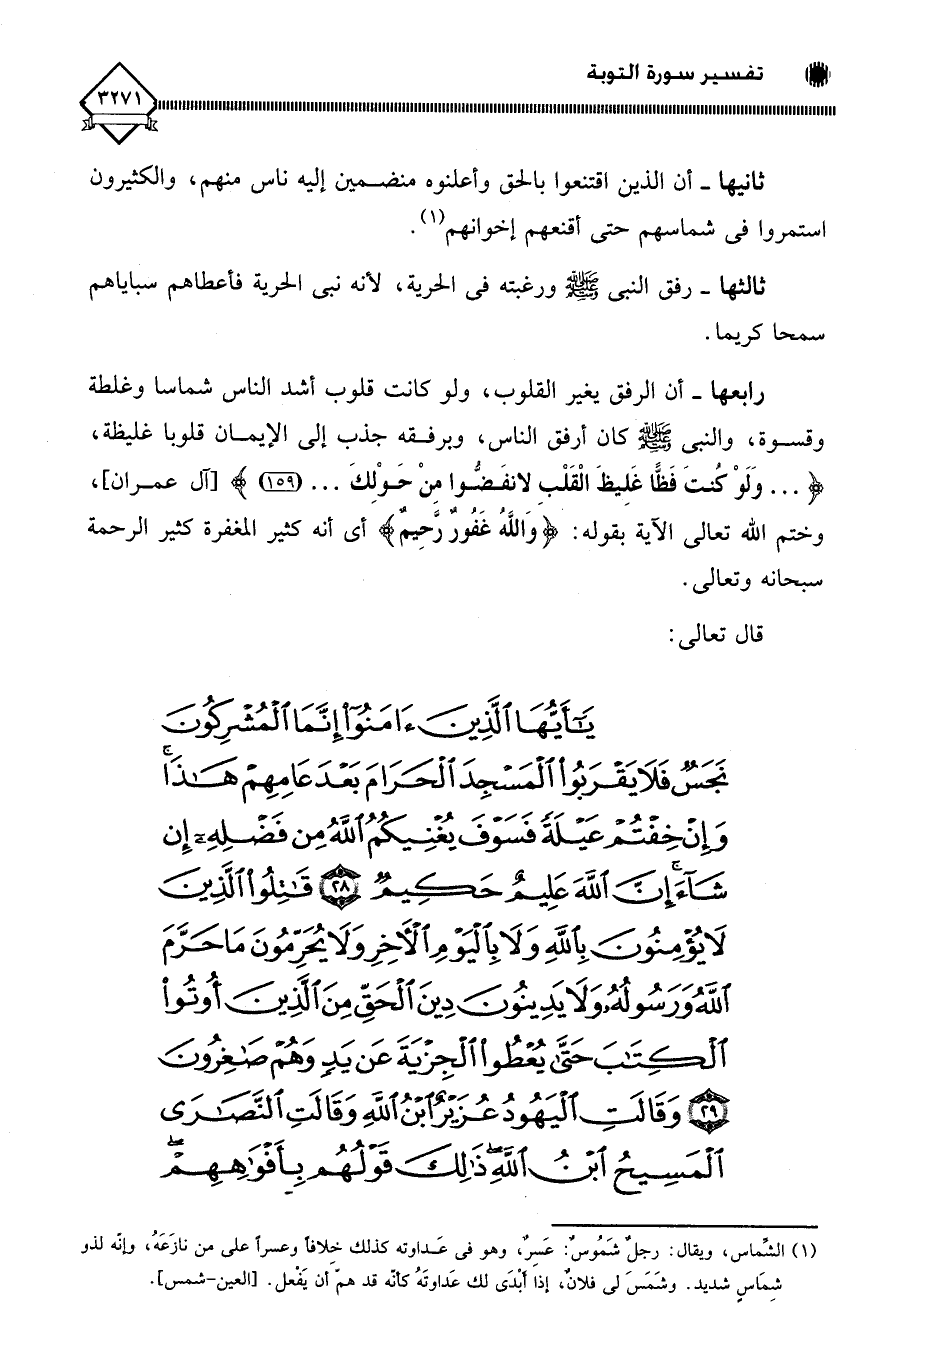 تفسير سورة التوبة
٣٢٧١
ثانيها ـ أن الذين اقتنعوا بالحق وأعلنوه منضمين إليه ناس منهم، والكثيرون
استمروا فى شماسهم حتى أقنعهم إخوانهم(١).
ثالثها ـ رفق النبى ﷺ ورغبته فى الحرية، لأنه نبى الحرية فأعطاهم سباياهم
سمحا كريما.
رابعها ـ أن الرفق يغير القلوب، ولو كانت قلوب أشد الناس شماسا وغلظة
وقسوة، والنبى ﷺ كان أرفق الناس، وبرفقه جذب إلى الإيمان قلوبا غليظة،
﴿ ... وَلَوْ كُنتَ فَظًّا غَلِيظَ الْقَلْبِ لانفَضُّوا مِنْ حَوْلِكَ ... (١٥٩) ﴾ [آل عمران]،
وختم الله تعالى الآية بقوله: ﴿وَاللَّهُ غَفُورٌ رَّحِيمٌ﴾ أى أنه كثير المغفرة كثير الرحمة
سبحانه وتعالى.
قال تعالى:
يَـٰٓأَيُّهَا ٱلَّذِينَ ءَامَنُوٓا۟ إِنَّمَا ٱلْمُشْرِكُونَ
نَجَسٌ فَلَا يَقْرَبُوا۟ ٱلْمَسْجِدَ ٱلْحَرَامَ بَعْدَ عَامِهِمْ هَـٰذَا ۚ
وَإِنْ خِفْتُمْ عَيْلَةً فَسَوْفَ يُغْنِيكُمُ ٱللَّهُ مِن فَضْلِهِۦٓ إِن
شَآءَ ۚ إِنَّ ٱللَّهَ عَلِيمٌ حَكِيمٌ ٢٨ قَـٰتِلُوا۟ ٱلَّذِينَ
لَا يُؤْمِنُونَ بِٱللَّهِ وَلَا بِٱلْيَوْمِ ٱلْـَٔاخِرِ وَلَا يُحَرِّمُونَ مَا حَرَّمَ
ٱللَّهُ وَرَسُولُهُۥ وَلَا يَدِينُونَ دِينَ ٱلْحَقِّ مِنَ ٱلَّذِينَ أُوتُوا۟
ٱلْكِتَـٰبَ حَتَّىٰ يُعْطُوا۟ ٱلْجِزْيَةَ عَن يَدٍ وَهُمْ صَـٰغِرُونَ
٢٩ وَقَالَتِ ٱلْيَهُودُ عُزَيْرٌ ٱبْنُ ٱللَّهِ وَقَالَتِ ٱلنَّصَـٰرَى
ٱلْمَسِيحُ ٱبْنُ ٱللَّهِ ۖ ذَٰلِكَ قَوْلُهُم بِأَفْوَٰهِهِمْ ۖ
(١) الشِّماس، ويقال: رجلٌ شَمُوسٌ: عَسِرٌ، وهو فى عَداوته كذلك خلافاً وعسراً على من نازَعَهُ، وإنّه لذو
شِمَاسٍ شديد. وشَمَسَ لى فلانٌ، إذا أبْدَى لك عَداوتَهُ كأنّه قد همّ أن يَفْعل. [العين-شمس].